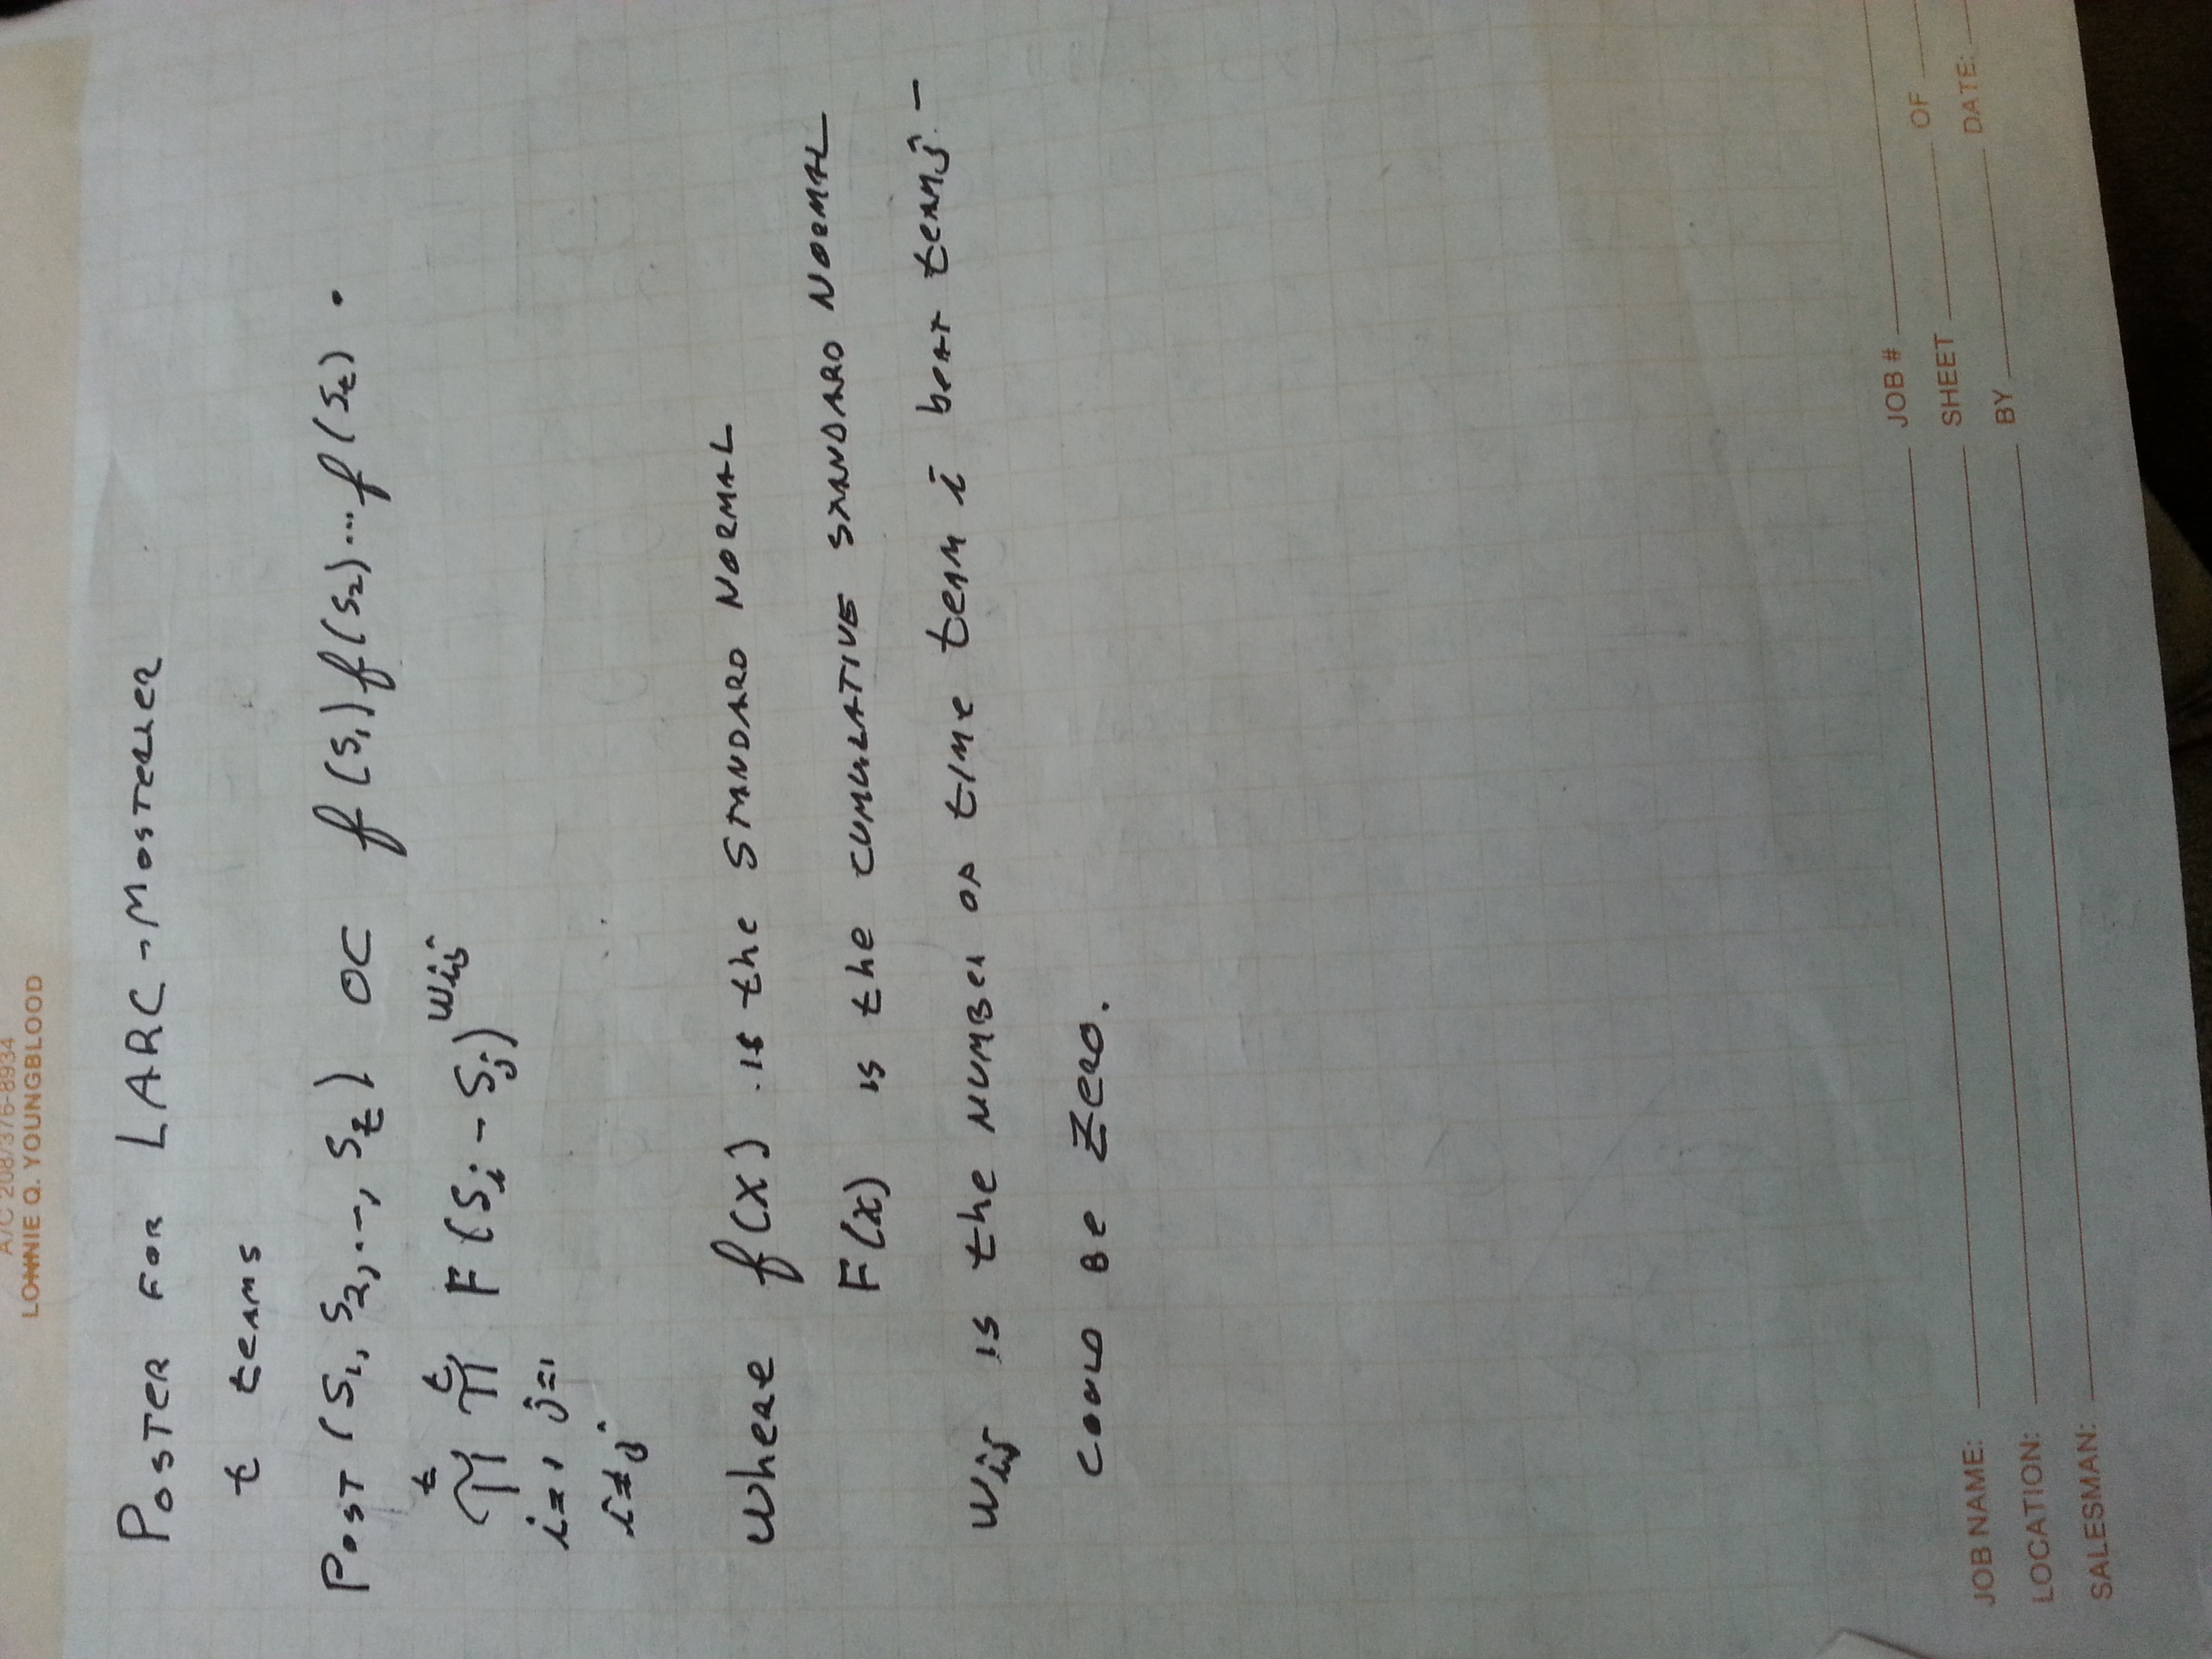 A/C 208/376-8934
LONNIE Q. YOUNGBLOOD
POSTER FOR LARC-MOSTELLER
t teams
POST (S₁, S₂, ..., Sₜ) ∝ f(S₁) f(S₂) ... f(Sₜ) ·
t t
∏ ∏ F(Sᵢ - Sⱼ)^Wij
i=1 j=1
i≠j
where f(x) is the STANDARD NORMAL
F(x) is the CUMULATIVE STANDARD NORMAL
Wij is the NUMBER OF time team i beat team j -
COULD BE ZERO.
JOB NAME:
JOB #
LOCATION:
SHEET OF
SALESMAN:
BY DATE: